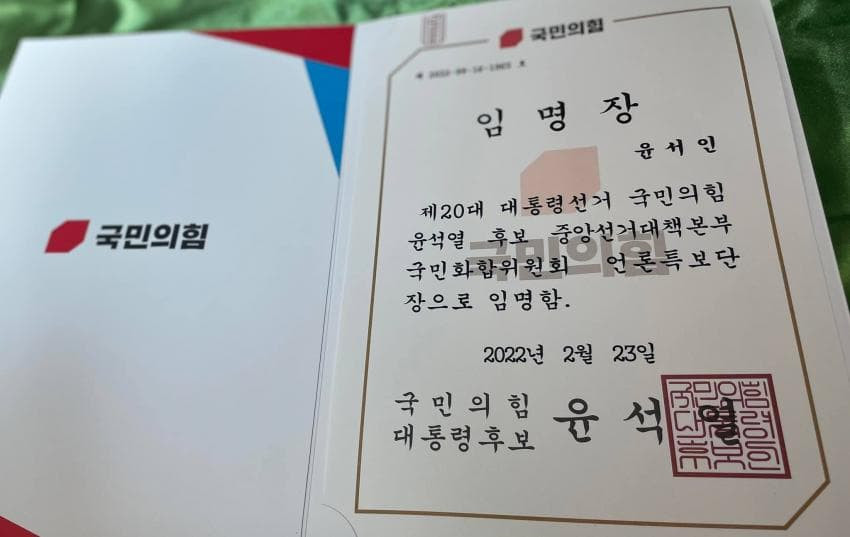 국민의힘
국민의힘
제 2022-09-16-1985 호
임 명 장
윤 서 인
제20대 대통령선거 국민의힘
윤석열 후보 중앙선거대책본부
국민화합위원회 언론특보단
장으로 임명함.
국민의힘
2022년 2월 23일
국 민 의 힘
대통령후보 윤 석 열